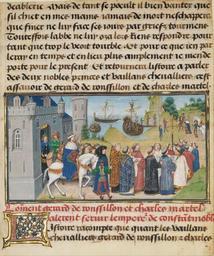 deablerie. Mais de tant se peoult il bien vanter que
sil chiet en mes mains jamais de mort neschappera
que finer ne luy face ses jours par grief tourment
Toutesfois labbe ne luy osa lors riens respondre pour
tant que trop le veoit trouble. Et pour ce que len par
lera en temps et en lieu plus amplement je men de
porte pour le present. Et retourneray listoire a parler
des deux nobles princes et vaillans chevalliers cest
assavoir de gerard de roussillon et de charles martel
Coment gerard de roussillon et charles martel
alerent servir lempereur de constantinoble
Listoire racompte que quant les vaillans
chevalliers gerard de roussillon et charles